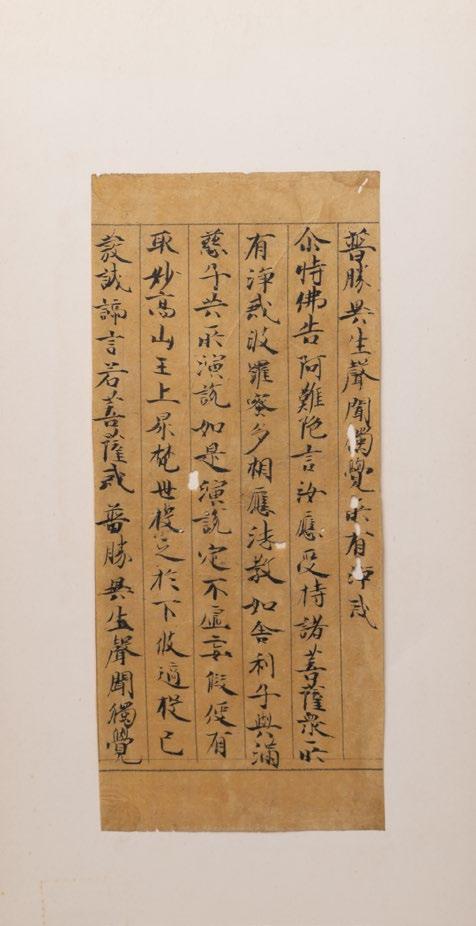 普勝異生聲聞獨覺所有淨戒
尒時佛告阿難陁言汝應受持諸菩薩衆所
有淨戒波羅蜜多相應法教如舍利子與滿
慈子共所演說如是演說定不虛妄假使有
取妙高山王上昇梵世投之於下彼適投已
發誠諦言若菩薩戒普勝異生聲聞獨覺